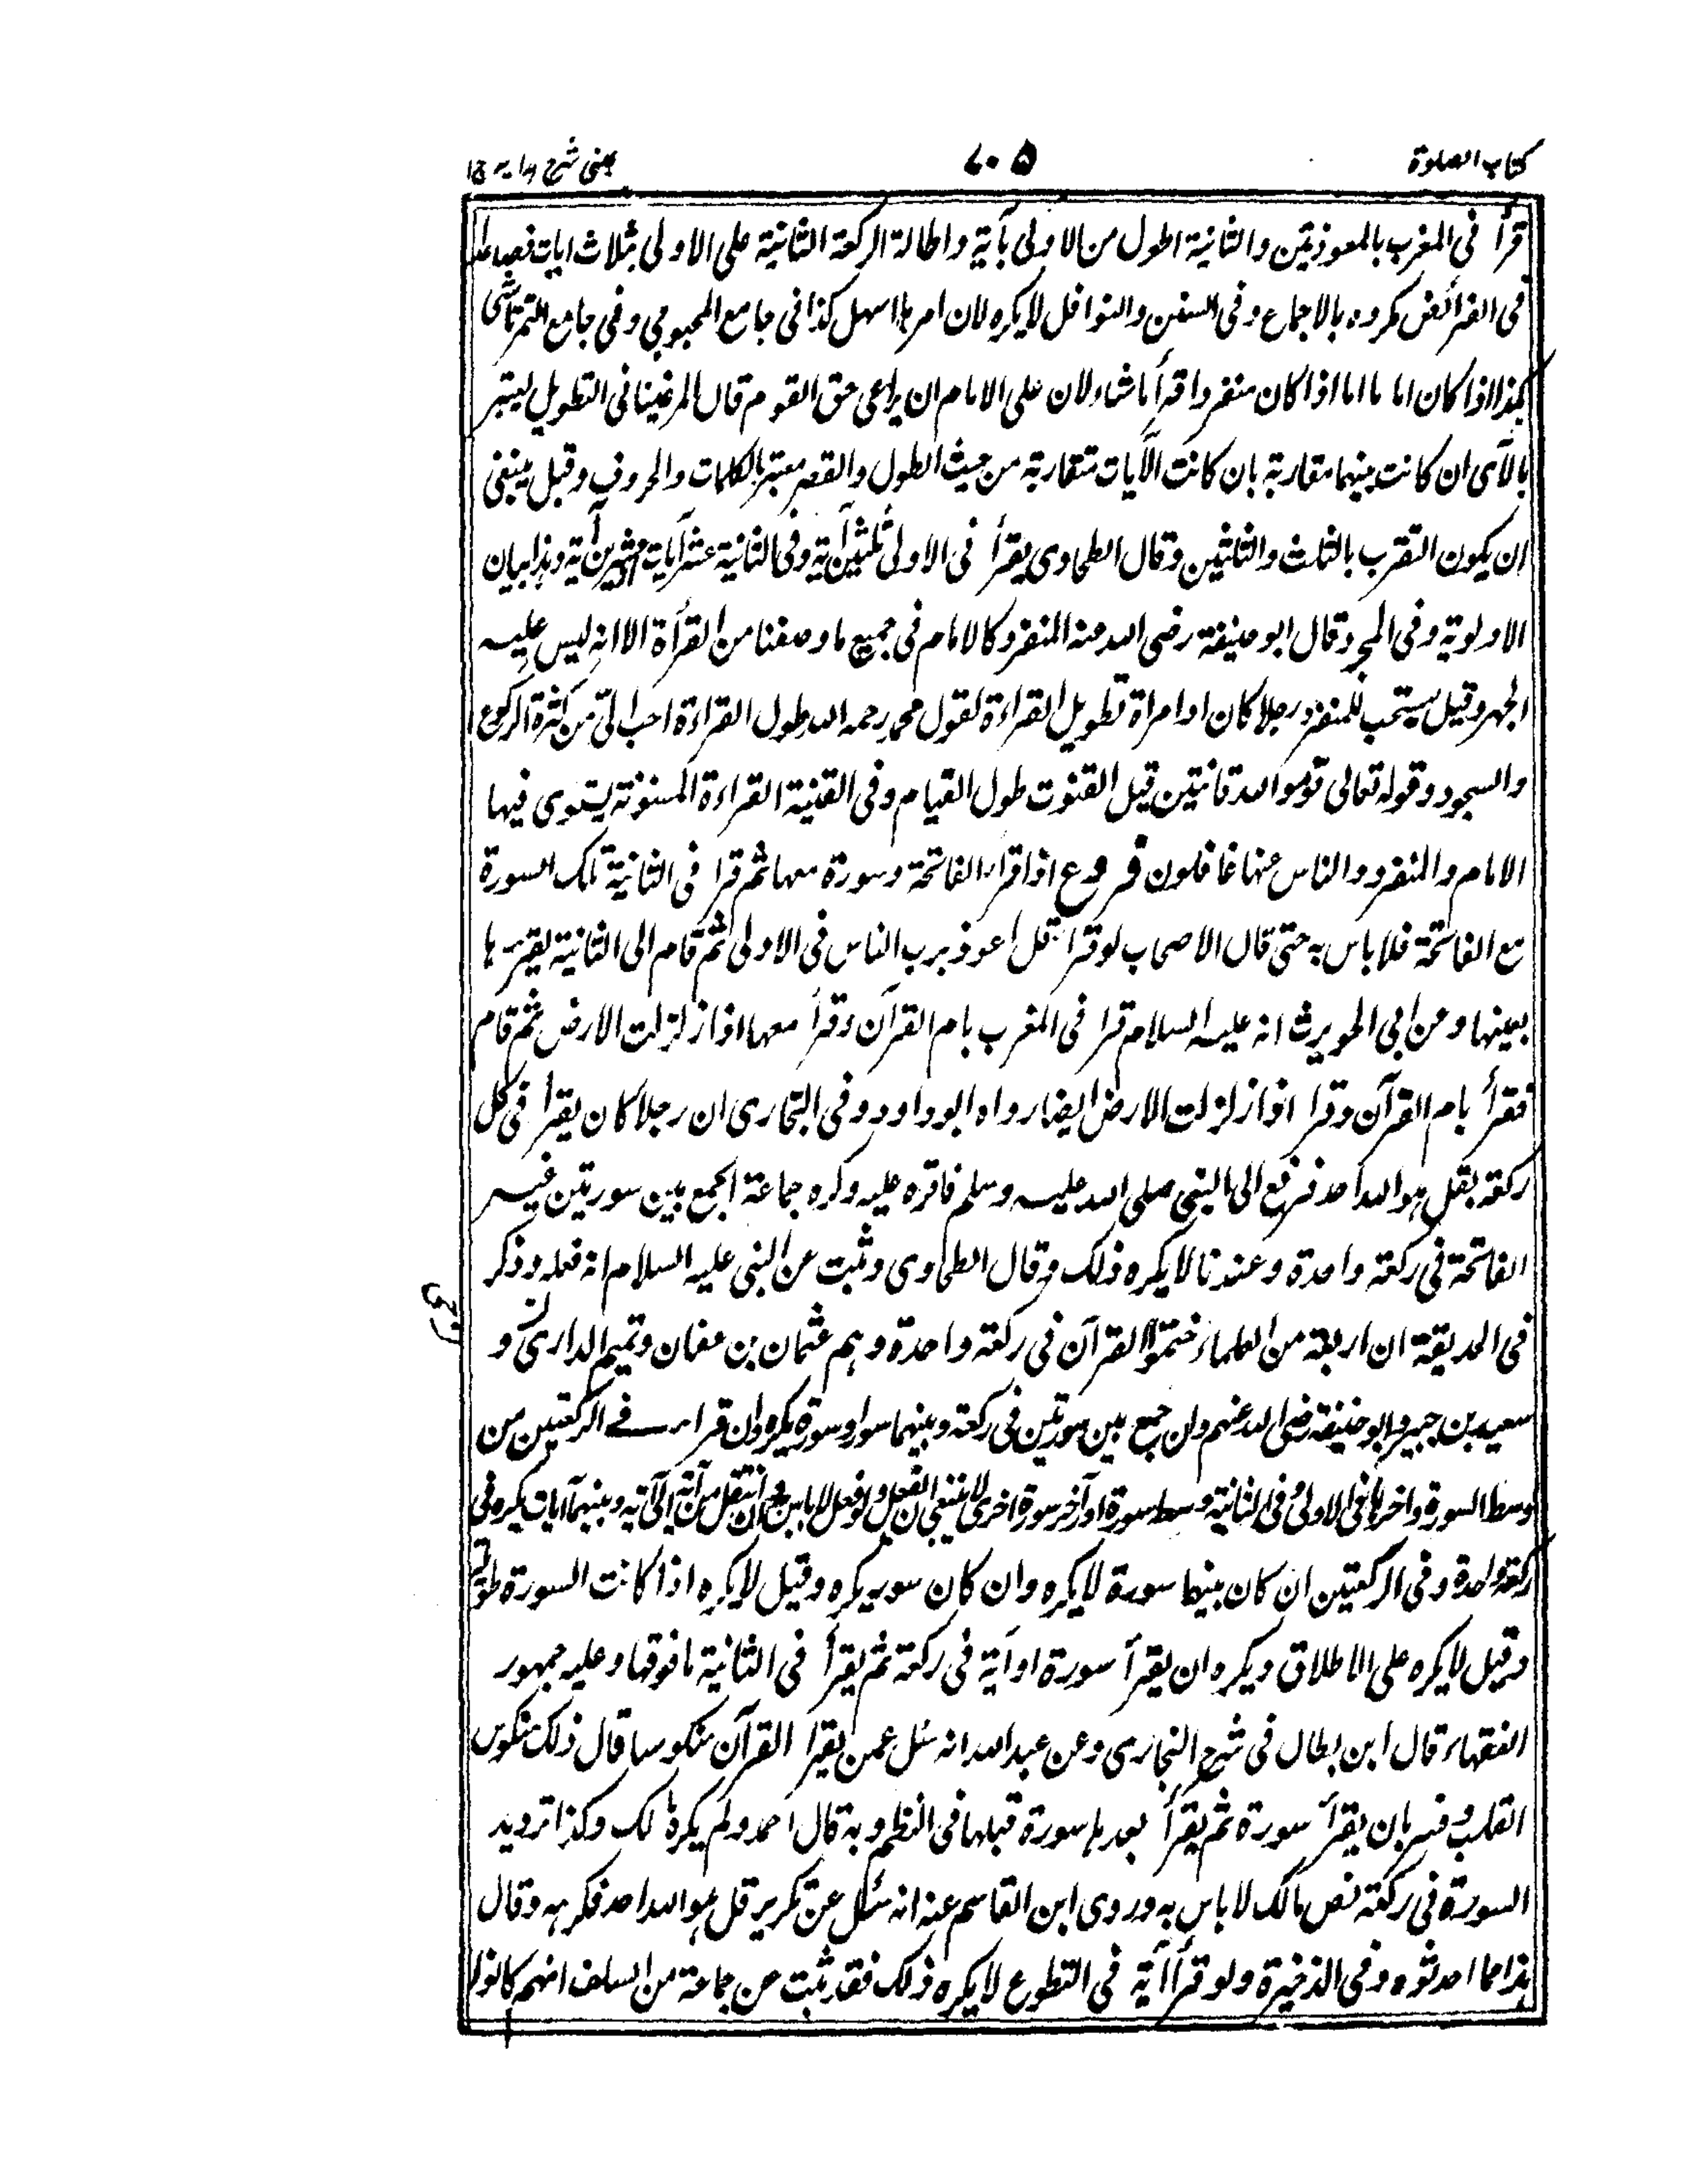 كتاب الصلوة
٧٠٥
عينى شرح هدايه ج١
قرأ فى المغرب بالمعوذتين والثانية اطول من الاولى بآية واطالة الركعة الثانية على الاولى بثلاث ايات فصاعدا
فى الفرائض مكروه بالاجماع وفى السنن والنوافل لا يكره لان امرها اسهل كذا فى جامع المحبوبي وفى جامع التمرتاشى
هذا اذا كان اماما اما اذا كان منفردا قرأ ما شاء لان على الامام ان يراعى حق القوم قال المرغينانى التطويل يعتبر
بالآى ان كانت بينهما مقاربة بان كانت الآيات متقاربة من حيث الطول والقصر معتبر بالكلمات والحروف وقيل ينبغى
ان يكون التقرب بالثلث والثلثين وقال الطحاوى يقرأ فى الاولى ثلثين آية وفى الثانية عشر آيات وعشرين آية وهذا بيان
الاولوية وفى المجرد قال ابو حنيفة رضى الله عنه المنفرد كالامام فى جميع ما وصفنا من القرأة الا انه ليس عليه
الجهر وقيل يستحب للمنفرد رجلا كان او امراة تطويل القراءة لقول محمد رحمه الله طول القراءة احب الى من كثرة الركوع
والسجود وقوله تعالى قوموا لله قانتين قيل القنوت طول القيام وفى القنية القراءة المسنونة يستوى فيها
الامام والمنفرد والناس عنها غافلون فروع اذا قرا الفاتحة وسورة معها ثم قرا فى الثانية تلك السورة
مع الفاتحة فلا باس به حتى قال الاصحاب لو قرا قل اعوذ برب الناس فى الاولى ثم قام الى الثانية يقرؤها
بعينها وعن ابى الحويرث انه عليه السلام قرا فى المغرب بام القرآن وقرأ معها اذا زلزلت الارض ثم قام
فقرأ بام القرآن وقرا اذا زلزلت الارض ايضا رواه ابوداود وفى البخارى ان رجلا كان يقرا فى كل
ركعة بقل هو الله احد فرفع الى النبى صلى الله عليه وسلم فاقره عليه وكره جماعة الجمع بين سورتين غير
الفاتحة فى ركعة واحدة وعندنا لا يكره ذلك وقال الطحاوى وثبت عن النبى عليه السلام انه فعله وذكر
فى الحديقة ان اربعة من العلماء ختموا القرآن فى ركعة واحدة وهم عثمان بن عفان وتميم الدارى و
سعيد بن جبير وابو حنيفة رضى الله عنهم وان جمع بين سورتين فى ركعة وبينهما سور او سورة يكره وان قرا فى الركعتين من
وسط السورة واخرها فى الاولى وفى الثانية وسط سورة او آخر سورة اخرى لا ينبغى ان يفعل ولو فعل لا باس به وان انتقل من آية الى آية وبينهما آيات يكره فى
ركعة واحدة وفى الركعتين ان كان بينهما سورة لا يكره وان كان سورة يكره وقيل لا يكره اذا كانت السورة طويلة
وقيل لا يكره على الاطلاق ويكره ان يقرأ سورة او آية فى ركعة ثم يقرأ فى الثانية ما فوقها وعليه جمهور
الفقهاء قال ابن بطال فى شرح البخارى وعن عبد الله انه سئل عمن يقرا القرآن منكوسا قال ذلك منكوس
القلب وفسر بان يقرأ سورة ثم يقرأ بعدها سورة قبلها فى النظم وبه قال احمد ولم يكره مالك وكذا ترديد
السورة فى ركعة نص مالك لا باس به وروى ابن القاسم عنه انه سئل عن تكرير قل هو الله احد فكرهه وقال
هذا مما احدثوه وفى الذخيرة ولو قرأ آية فى التطوع لا يكره ذلك فقد ثبت عن جماعة من السلف انهم كانوا